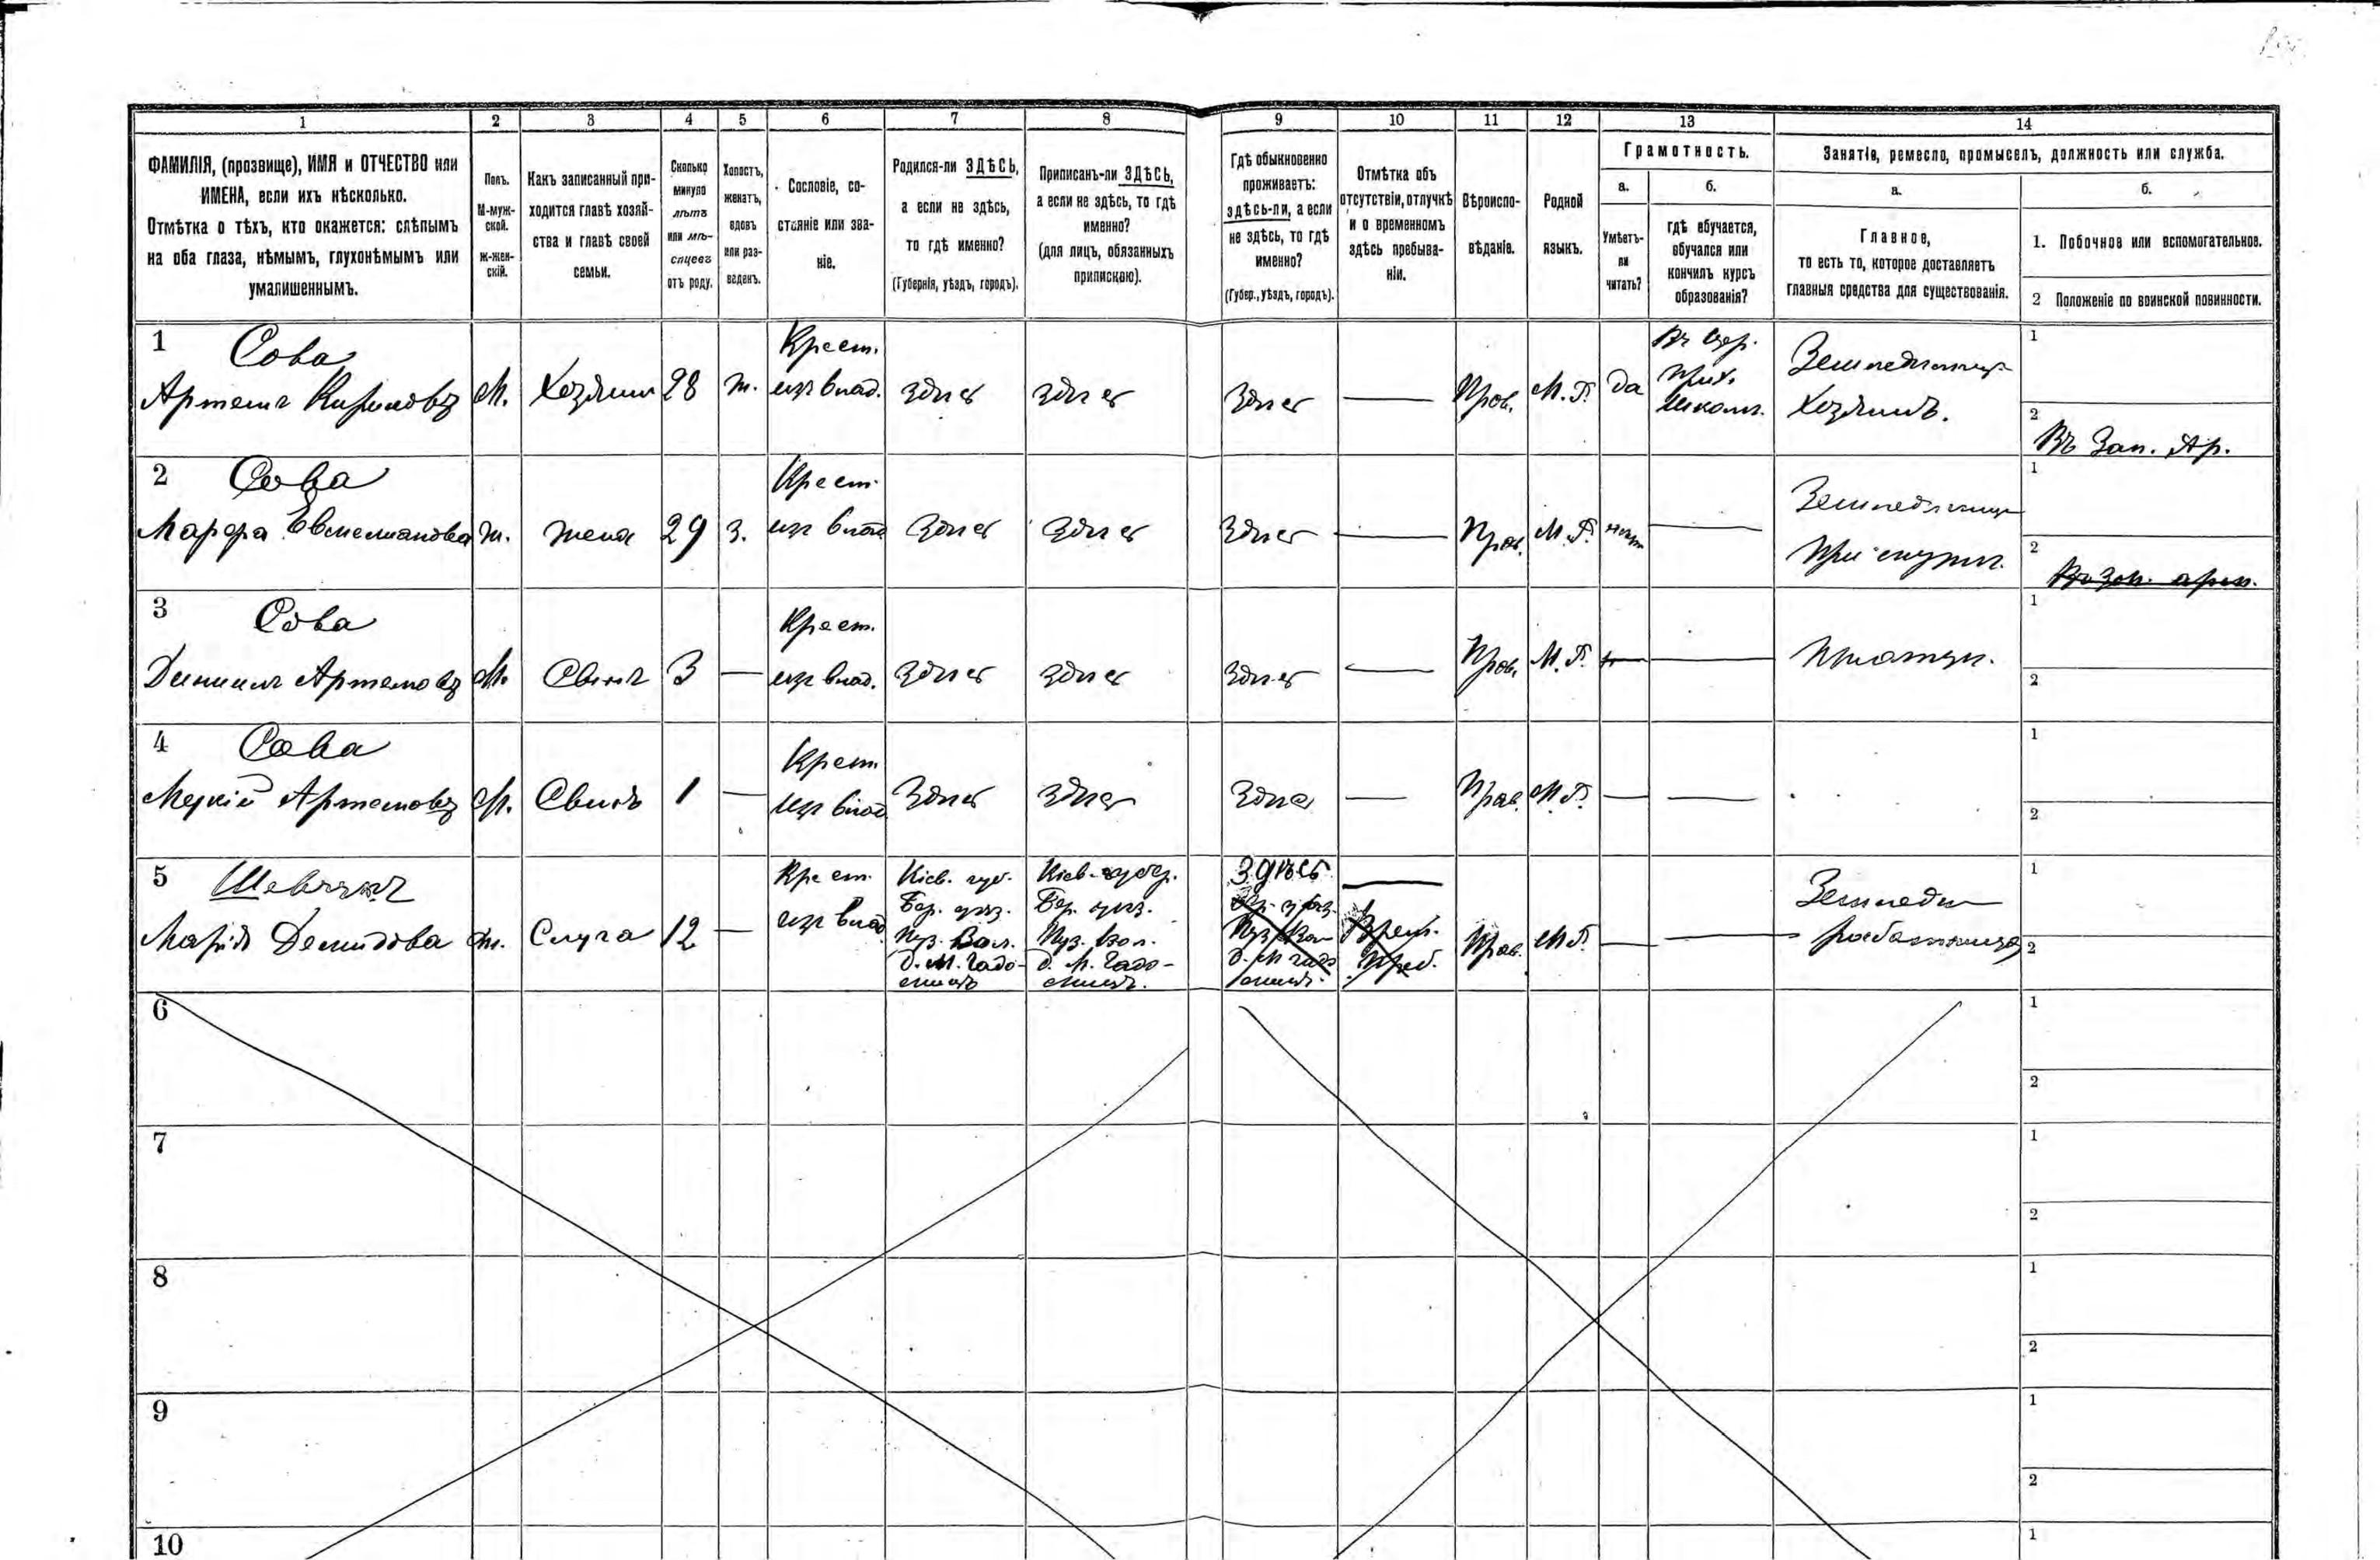 1 2 3 4 5 6 7 8 9 10 11 12 13 14
ФАМИЛІЯ, (прозвище), ИМЯ и ОТЧЕСТВО или
ИМЕНА, если ихъ нѣсколько.
Отмѣтка о тѣхъ, кто окажется: слѣпымъ
на оба глаза, нѣмымъ, глухонѣмымъ или
умалишеннымъ.
Полъ.
М-муж-
ской.
Ж-жен-
скій.
Какъ записанный при-
ходится главѣ хозяй-
ства и главѣ своей
семьи.
Сколько
минуло
лѣтъ
или мѣ-
сяцевъ
отъ роду.
Холостъ,
женатъ,
вдовъ
или раз-
веденъ.
Сословіе, со-
стояніе или зва-
ніе.
Родился-ли ЗДѢСЬ,
а если не здѣсь,
то гдѣ именно?
(Губернія, уѣздъ, городъ).
Приписанъ-ли ЗДѢСЬ,
а если не здѣсь, то гдѣ
именно?
(для лицъ, обязанныхъ
припискою).
Гдѣ обыкновенно
проживаетъ:
здѣсь-ли, а если
не здѣсь, то гдѣ
именно?
(Губер., уѣздъ, городъ).
Отмѣтка объ
отсутствіи, отлучкѣ
и о временномъ
здѣсь пребыва-
ніи.
Вѣроиспо-
вѣданіе.
Родной
языкъ.
Грамотность.
а.
Умѣетъ-
ли
читать?
б.
гдѣ обучается,
обучался или
кончилъ курсъ
образованія?
Занятіе, ремесло, промыселъ, должность или служба.
а.
Главное,
то есть то, которое доставляетъ
главныя средства для существованія.
б.
1. Побочное или вспомогательное.
2 Положеніе по воинской повинности.
1 Сова
Артемъ Кириловъ М. Хозяинъ 28 ж. Крест. изъ влад. здѣсь здѣсь здѣсь — Прав. М.Р. да Въ Цер. Прих. школѣ. Земледѣлецъ Хозяинъ.
1
2 Въ Зап. Ар.
2 Сова
Марфа Емельянова ж. жена 29 з. Крест. изъ влад. здѣсь здѣсь здѣсь — Прав. М.Р. нѣтъ — При мужѣ.
1
2
3 Сова
Даніилъ Артемовъ М. Сынъ 3 — Крест. изъ влад. здѣсь здѣсь здѣсь — Прав. М.Р. — —
1
2
4 Сова
Артемовъ М. Сынъ 1 — Крест. изъ влад. здѣсь здѣсь здѣсь — Прав. М.Р. — —
1
2
5
Марія Демидова ж. Слуга 12 — Крест. изъ влад.
Кіев. губ.
Бер. уѣз.
Пуз. Вол.
д. М. Гадо-
мцы
Кіев. губер.
Бер. уѣз.
Пуз. Вол.
д. М. Гадо-
Здѣсь
—
Врем.
Преб.
Прав. М.Р. — —
работница
1
2
6 1
2
7 1
2
8 1
2
9 1
2
10 1